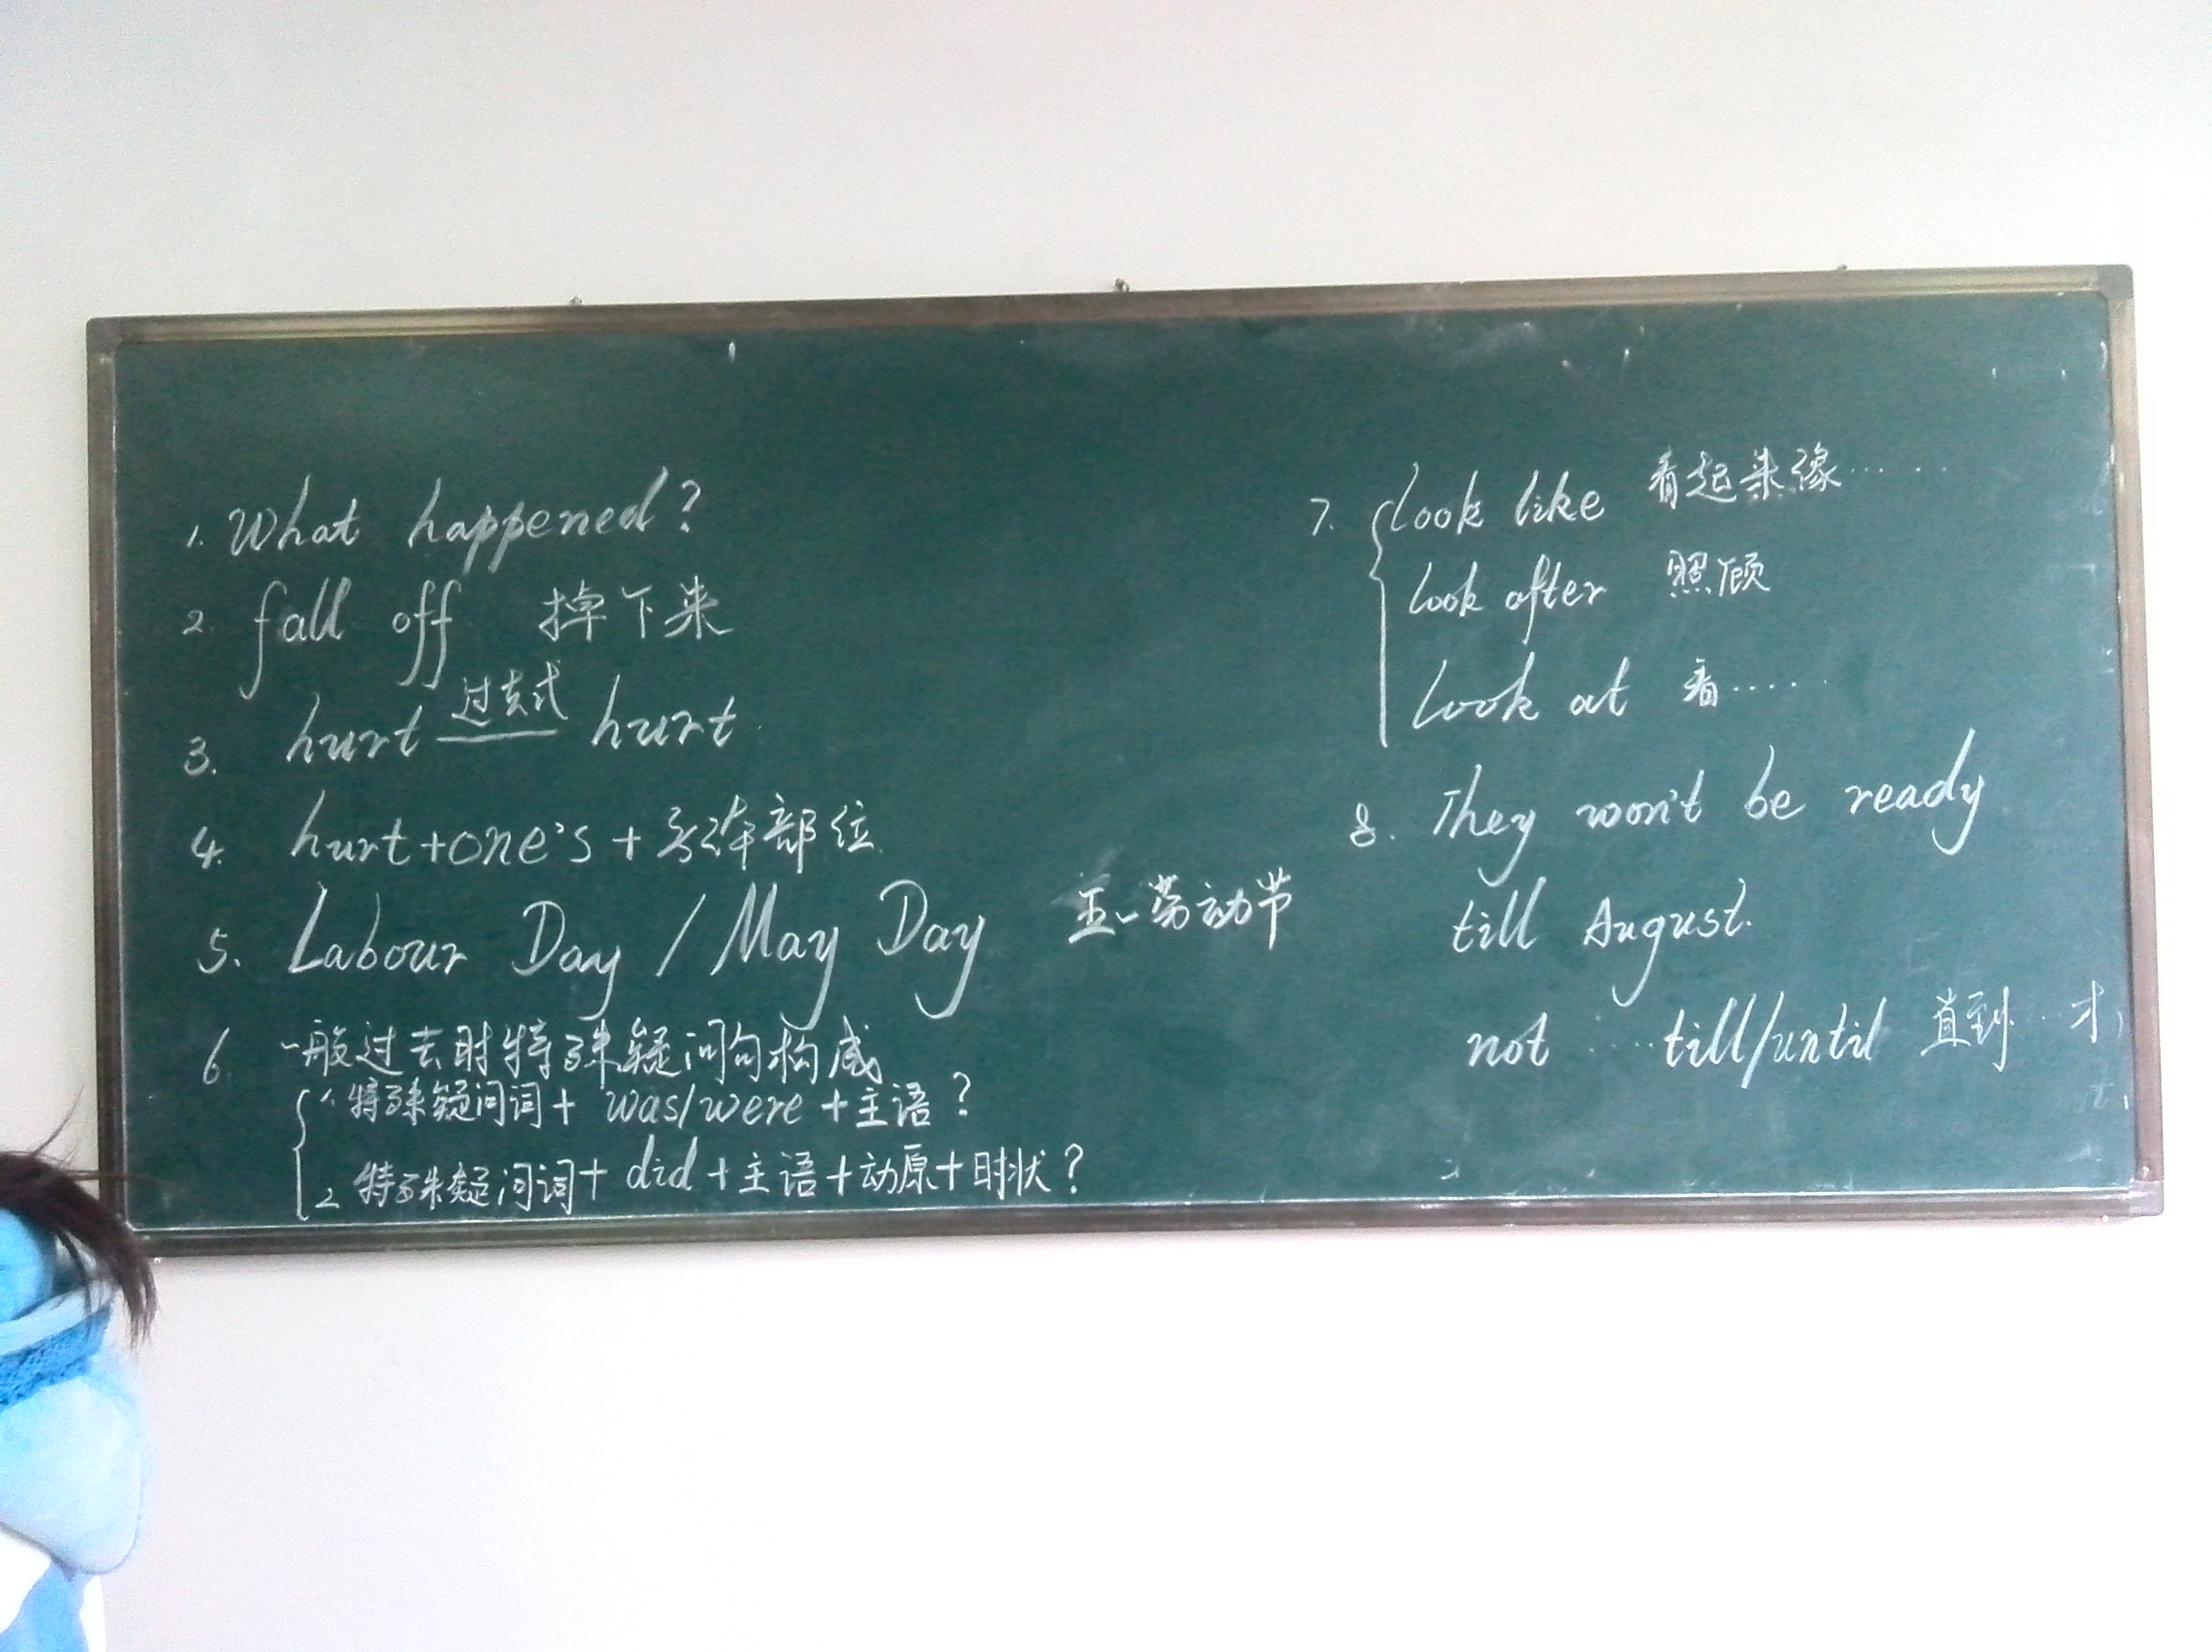 1. What happened?
2. fall off 掉下来
3. hurt 过去式 hurt
4. hurt+one's+身体部位
5. Labour Day / May Day 五一劳动节
6. 一般过去时特殊疑问句构成
1. 特殊疑问词+ was/were +主语?
2. 特殊疑问词+ did +主语+动原+时状?
7. look like 看起来像……
look after 照顾
look at 看……
8. They won't be ready
till August.
not …… till/until 直到…才